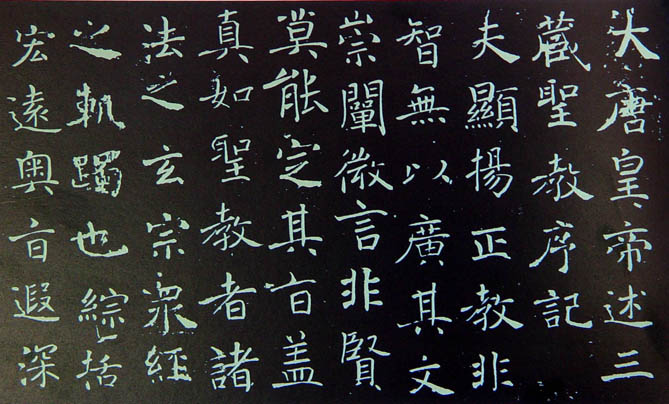 大唐皇帝述三
藏聖教序記
夫顯揚正教非
智無以廣其文
崇闡微言非賢
莫能定其旨盖
真如聖教者諸
法之玄宗衆經
之軌躅也綜括
宏遠奥旨遐深